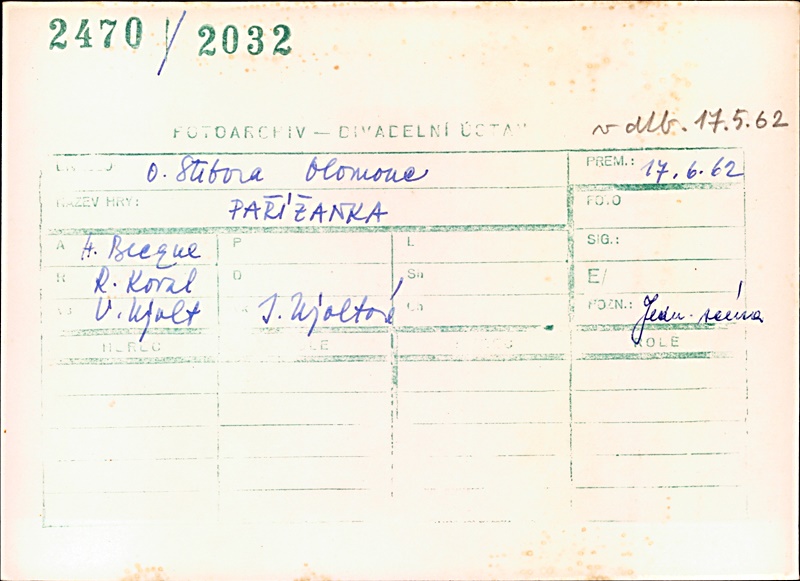 2470 / 2032
FOTOARCHIV — DIVADELNÍ ÚSTAV v dlb. 17.5.62
O. Stibora Olomouc PREM.: 17.6.62
NÁZEV HRY: PAŘÍŽANKA FOTO
A H. Becque P L SIG.:
R R. Koval O Sh E/
V. Ujolt J. Ujoltová Ch POZN.: Jedn. scéna
HEREC ROLE HEREC ROLE